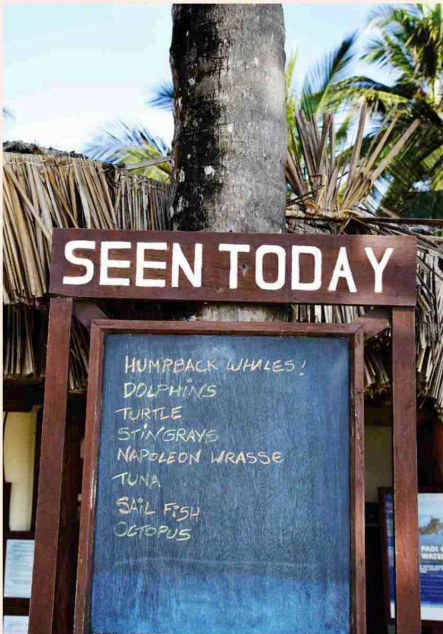 SEEN TODAY
HUMPBACK WHALES!
DOLPHINS
TURTLE
STINGRAYS
NAPOLEON WRASSE
TUNA
SAIL FISH
OCTOPUS
PADI
WATER